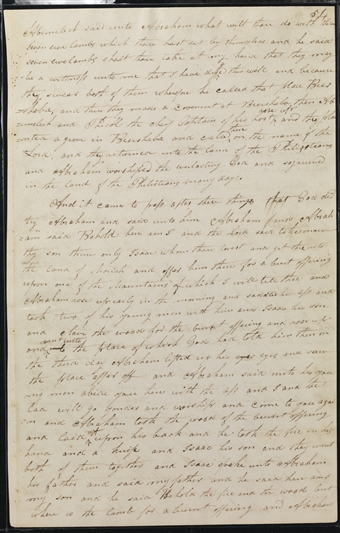 51
Abimelech said unto Abraham what wilt thou do with these
seven ewe lambs which thou hast set by themselves and he said
seven ewe lambs shalt thou take at my hand that they may
be a witness unto me that I have digged this well and because
they sware both of them therefore he called that place Beer
Sheba, and thus they made a covenant at Beersheba, then Abi
melech and Phicol the chief Captain of his host rose up and they
a grove in Beersheba and called there on the name of the
Lord, and they returned unto the land of the Philistines
and Abraham worshiped the everlasting God and sojourned
in the land of the Philistines many days.
And it came to pass after these things that God did
try Abraham and said unto him Abraham and Abrah
am said Behold here am I and the Lord said take now
thy son thine only Isaac whom thou lovest and get thee into
the land of Moriah and offer him there for a burnt offering
upon one of the Mountains of which I will tell thee and
Abraham rose up early in the morning and saddled his ass and
took two of his young men with him and Isaac his son
and clave the wood for the burnt offering and rose up
and went unto the place of which God had told him then on
the third day Abraham lifted up his eyes and saw
the place afar off and Abraham said unto his young
men abide you here with the ass and I and the
lad will go yonder and worship and come to you again
and Abraham took the wood of the burnt offering
and laid it upon his back and he took the fire in his
hand and a knife and Isaac his son and they went
both of them together and Isaac spake unto Abraham
his father and said my father and he said here am I
my son and he said Behold the fire and the wood but
where is the lamb for a burnt offering and Abraham